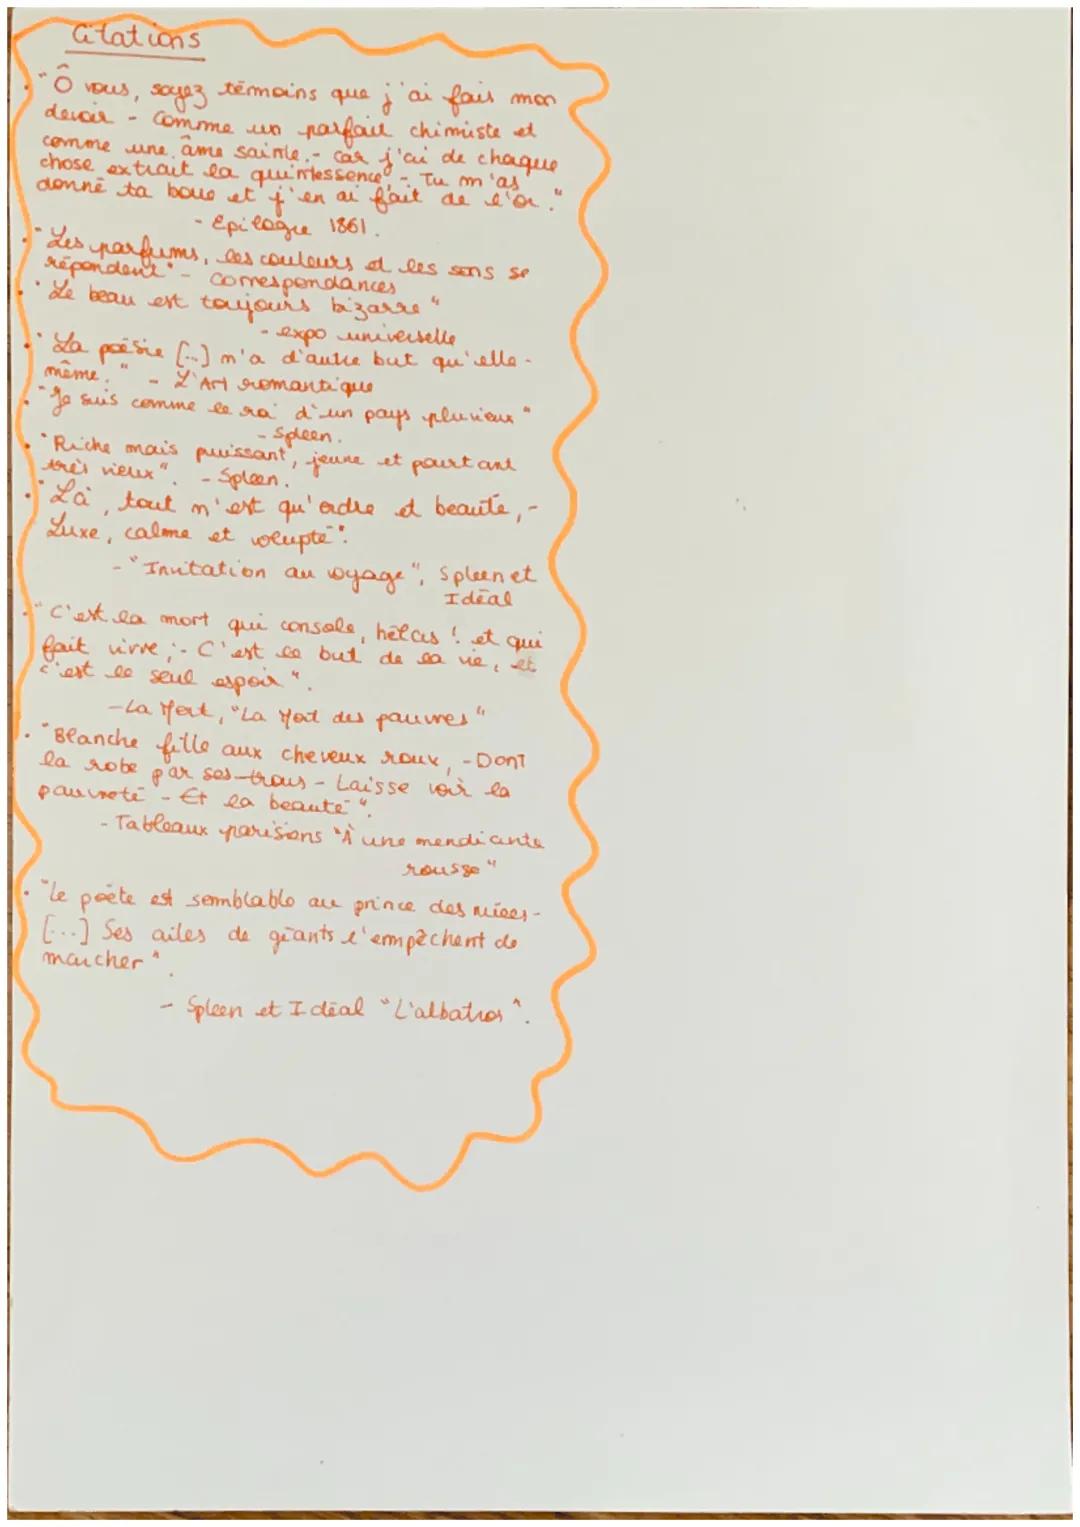 Citations
• "Ô vous, soyez témoins que j'ai fais mon
devoir - Comme un parfait chimiste et
comme une âme sainte.- Car j'ai de chaque
chose extrait la quintessence, - Tu m'as
donné ta boue et j'en ai fait de l'or."
- Epilogue 1861.
• "Les parfums, les couleurs et les sons se
répondent" - Correspondances
• "Le beau est toujours bizarre"
- expo universelle
• "La poésie [...] n'a d'autre but qu'elle-
même." - L'Art romantique
• "Je suis comme le roi d'un pays pluvieux"
- Spleen.
• "Riche mais puissant, jeune et pourtant
très vieux". - Spleen.
• "Là, tout n'est qu'ordre et beauté, -
Luxe, calme et volupté".
- "Invitation au voyage", Spleen et
Idéal
• "C'est la mort qui console, hélas ! et qui
fait vivre ;- C'est le but de la vie, et
c'est le seul espoir".
- La Mort, "La Mort des pauvres"
• "Blanche fille aux cheveux roux, - Dont
la robe par ses trous - Laisse voir la
pauvreté - Et la beauté".
- Tableaux parisiens "À une mendiante
rousse"
• "Le poète est semblable au prince des nuées -
[...] Ses ailes de géants l'empêchent de
marcher".
- Spleen et Idéal "L'albatros".